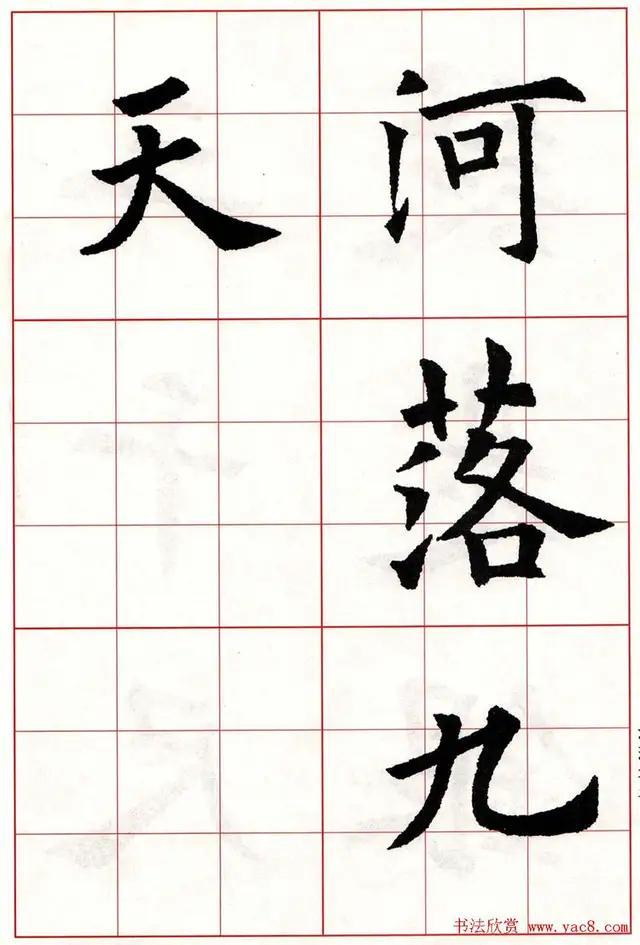 河落九
天
书法欣赏 www.yac8.com